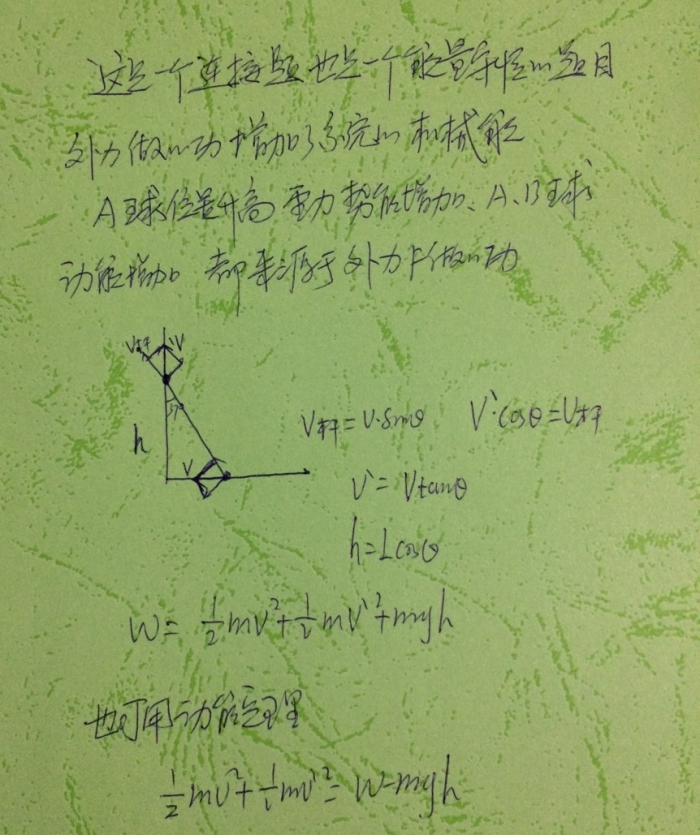 这是一个连接题也是一个能量守恒的题目
外力做的功增加了系统的机械能
A球位置升高 重力势能增加、A、B球
动能增加 都来源于外力F做的功
V杆 V'
θ
h
V
V杆=V·sinθ V'cosθ=V杆
V'=Vtanθ
h=Lcosθ
W=½mv²+½mv'²+mgh
也可用动能定理
½mv²+½mv'²=W-mgh